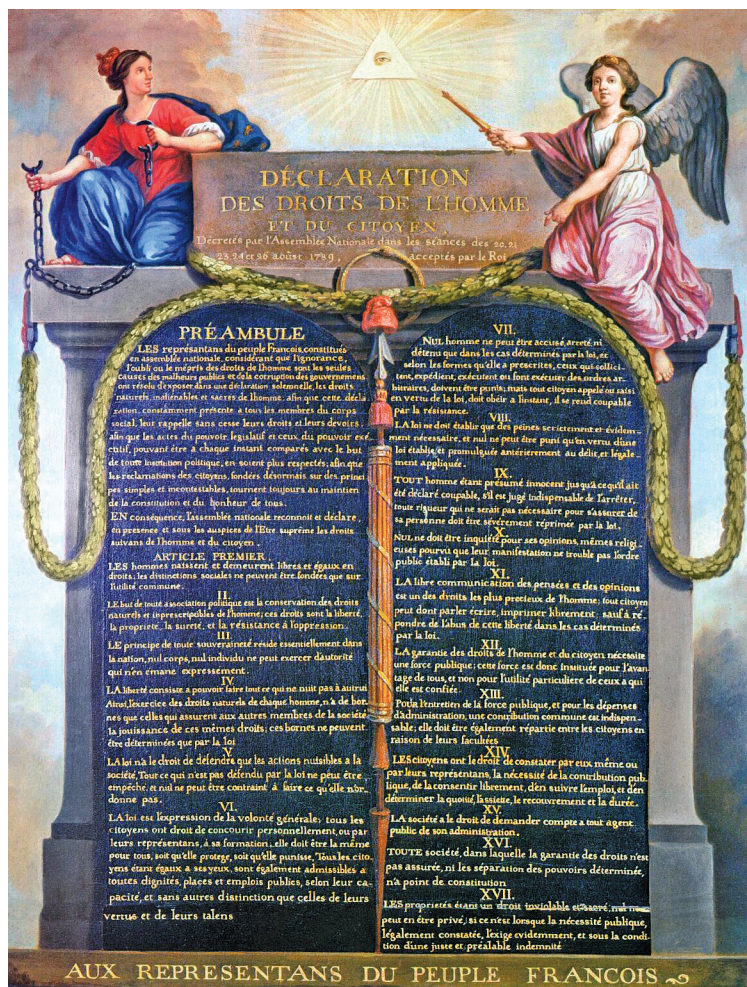 DÉCLARATION
DES DROITS DE L'HOMME
ET DU CITOYEN,
Décretés par l'Assemblée Nationale dans les séances des 20, 21
23, 24 et 26 août 1789, acceptés par le Roi
PRÉAMBULE
LES représantans du peuple François, constitués
en assemblée nationale, considérant que l'ignorance,
l'oubli ou le mépris des droits de l'homme sont les seules
causes des malheurs publics et de la corruption des gouvernemens
ont résolu d'exposer dans une déclaration solemnelle, les droits
naturels, inaliénables et sacrés de l'homme: afin que cette décla
ration, constamment présente a tous les membres du corps
social, leur rappelle sans cesse leurs droits et leurs devoirs;
afin que les actes du pouvoir legislatif et ceux du pouvoir exé
cutif, pouvant être a chaque instant comparés avec le but
de toute institution politique, en soient plus respectés; afin que
les reclamations des citoyens, fondées désormais sur des princi
pes simples et incontestables, tournent toujours au maintien
de la constitution et du bonheur de tous.
EN conséquence, l'assemblée nationale reconnoit et déclare,
en presence et sous les auspices de l'Etre suprême les droits
suivans de l'homme et du citoyen.
ARTICLE PREMIER.
LES hommes naissent et demeurent libres et égaux en
droits. les distinctions sociales ne peuvent être fondées que sur
l'utilité commune.
II.
LE but de toute association politique est la conservation des droits
naturels et inprescriptibles de l'homme; ces droits sont la liberté,
la propriété, la sureté, et la résistance à l'oppression.
III.
LE principe de toute souveraineté réside essentiellement dans
la nation, nul corps, nul individu ne peut exercer d'autorité
qui n'en émane expressement.
IV.
LA liberté consiste a pouvoir faire tout ce qui ne nuit pas à autrui
Ainsi, l'exercice des droits naturels de chaque homme, n'a de bor-
nes que celles qui assurent aux autres membres de la société
la jouissance de ces mêmes droits; ces bornes ne peuvent
être déterminées que par la loi
V.
LA loi n'a le droit de défendre que les actions nuisibles a la
société. Tout ce qui n'est pas défendu par la loi ne peut être
empêché, et nul ne peut être contraint à faire ce qu'elle n'or-
donne pas.
VI.
LA loi est l'expression de la volonté générale; tous les
citoyens ont droit de concourir personnellement, ou par
leurs représentans, à sa formation; elle doit être la même
pour tous, soit qu'elle protege, soit qu'elle punisse. Tous les cito-
yens étant égaux a ses yeux, sont également admissibles à
toutes dignités, places et emplois publics, selon leur ca-
pacité, et sans autres distinction que celles de leurs
vertus et de leurs talens
VII.
NUL homme ne peut être accusé, arreté, ni
détenu que dans les cas déterminés par la loi, et
selon les formes qu'elle a prescrites, ceux qui sollici-
tent, expédient, exécutent ou font exécuter des ordres ar-
bitraires, doivent être punis; mais tout citoyen appelé ou saisi
en vertu de la loi, doit obéir a l'instant, il se rend coupable
par la résistance.
VIII.
LA loi ne doit établir que des peines strictement et évidem-
ment nécessaire, et nul ne peut être puni qu'en vertu d'une
loi établie, et promulguée antérieurement au délit, et légale-
ment appliquée.
IX.
TOUT homme étant présumé innocent jusqu'a ce qu'il ait
été déclaré coupable, s'il est jugé indispensable de l'arrêter,
toute rigueur qui ne serait pas nécessaire pour s'assurer de
sa personne doit être sévèrement réprimée par la loi.
X.
NUL ne doit être inquiété pour ses opinions, mêmes religi-
euses pourvu que leur manifestation ne trouble pas l'ordre
public établi par la loi.
XI.
LA libre communication des pensées et des opinions
est un des droits les plus precieux de l'homme; tout citoyen
peut dont parler écrire, imprimer librement; sauf à ré-
pondre de l'abus de cette liberté dans les cas déterminés
par la loi.
XII.
LA garantie des droits de l'homme et du citoyen nécessite
une force publique; cette force est donc instituée pour l'avan-
tage de tous, et non pour l'utilité particuliere de ceux a qui
elle est confiée.
XIII.
Pour l'entretien de la force publique, et pour les dépenses
d'administration, une contribution commune est indispen-
sable; elle doit être également répartie entre les citoyens en
raison de leurs facultées
XIV.
LES citoyens ont le droit de constater par eux même ou
par leurs représentans, la nécessité de la contribution pub-
lique, de la consentir librement, d'en suivre l'emploi, et d'en
déterminer la quotité, l'assiette, le recouvrement et la durée.
XV.
LA société a le droit de demander compte a tout agent
public de son administration.
XVI.
TOUTE société, dans laquelle la garantie des droits n'est
pas assurée, ni les séparation des pouvoirs déterminée,
n'a point de constitution
XVII.
LES propriétés étant un droit inviolable et sacré, nul ne
peut en être privé, si ce n'est lorsque la nécessité publique,
légalement constatée, l'exige evidemment, et sous la condi-
tion d'une juste et préalable indemnité
AUX REPRESENTANS DU PEUPLE FRANCOIS